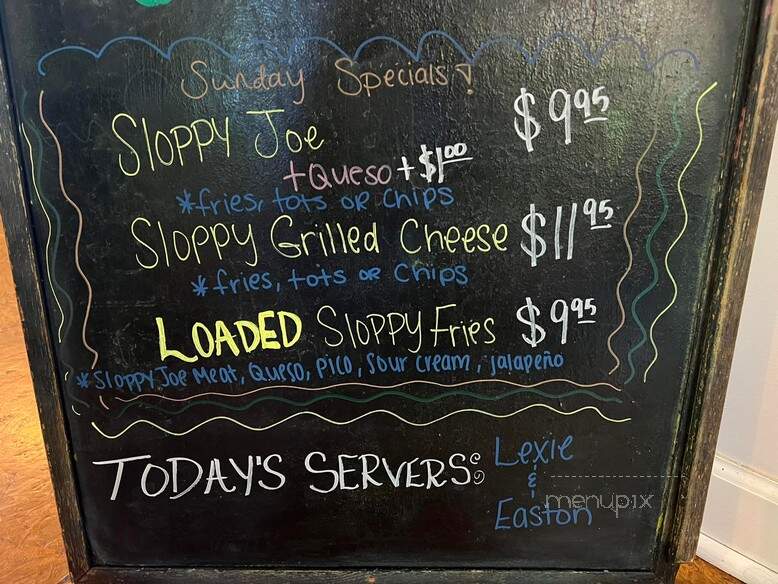 Sunday Specials!
Sloppy Joe $9.95
+Queso +$1.00
*fries, tots or chips
Sloppy Grilled Cheese $11.95
*fries, tots or chips
LOADED Sloppy Fries $9.95
*Sloppy Joe Meat, Queso, Pico, Sour cream, jalapeño
TODAY'S SERVERS: Lexie
&
Easton
menupix